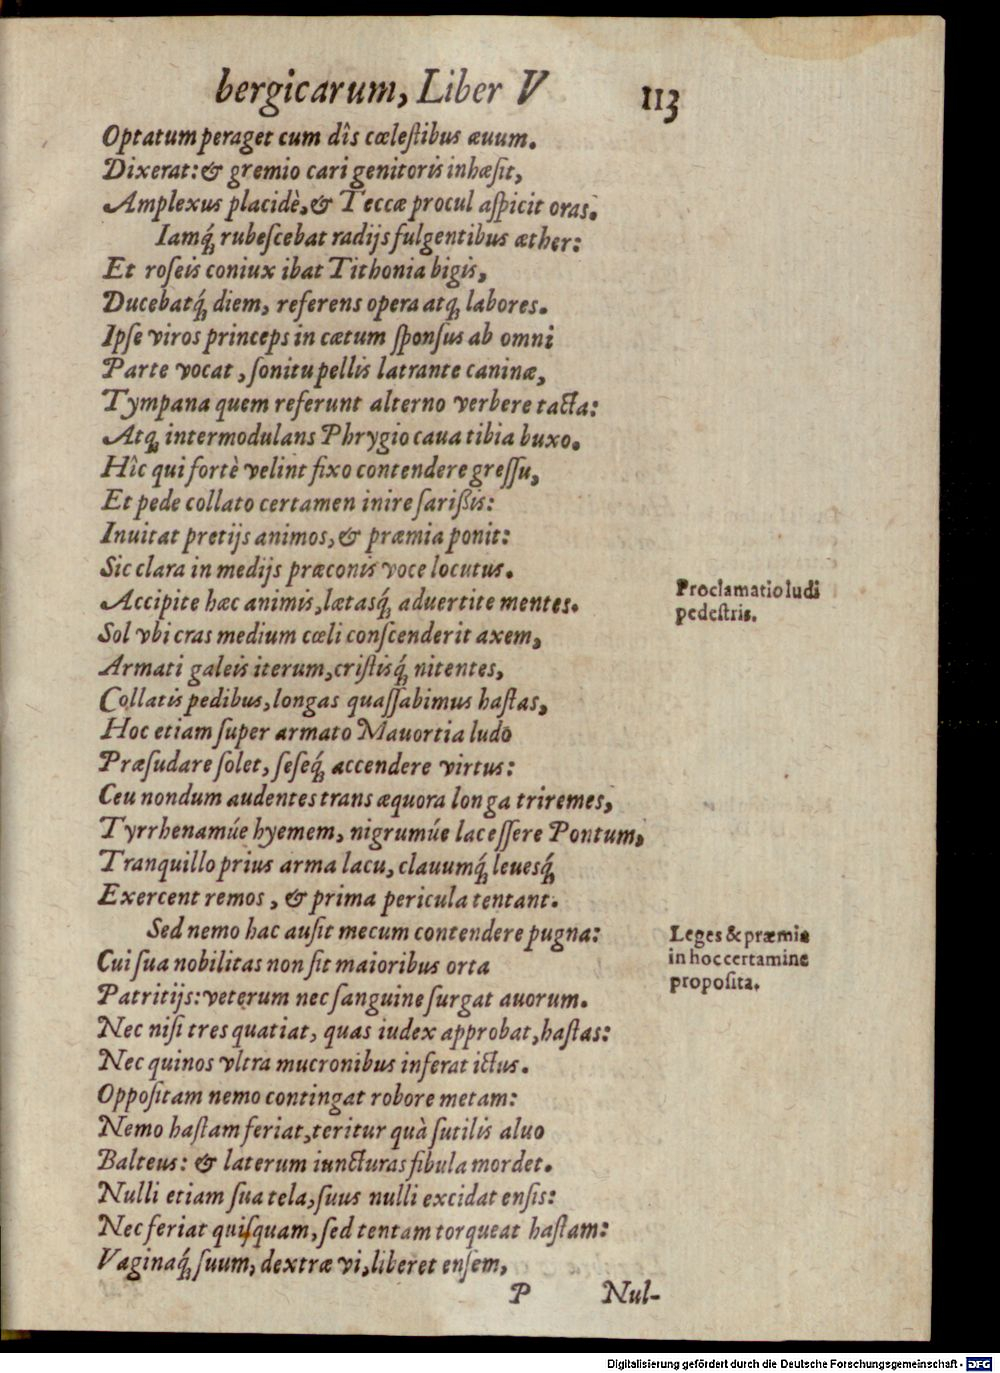 bergicarum, Liber V 113
Optatum peraget cum dîs cœlestibus ævum.
Dixerat: & gremio cari genitoris inhæsit,
Amplexus placidè, & Teccæ procul aspicit oras.
Iamq́; rubescebat radijs fulgentibus æther:
Et roseis coniux ibat Tithonia bigis,
Ducebatq́; diem, referens opera atq; labores.
Ipse viros princeps in cætum sponsus ab omni
Parte vocat, sonitu pellis latrante caninæ,
Tympana quem referunt alterno verbere tacta:
Atq; intermodulans Phrygio caua tibia buxo.
Hîc qui fortè velint fixo contendere gressu,
Et pede collato certamen inire sarißis:
Inuitat pretijs animos, & præmia ponit:
Sic clara in medijs præconis voce locutus.
Accipite hæc animis, lætasq́; aduertite mentes.
Proclamatio ludi
pedestris.
Sol vbi cras medium cœli conscenderit axem,
Armati galeis iterum, cristisq́; nitentes,
Collatis pedibus, longas quassabimus hastas,
Hoc etiam super armato Mauortia ludo
Præsudare solet, seseq́; accendere virtus:
Ceu nondum audentes trans æquora longa triremes,
Tyrrhenamúe hyemem, nigrumúe lacessere Pontum,
Tranquillo prius arma lacu, clauumq́; leuesq́;
Exercent remos, & prima pericula tentant.
Sed nemo hac ausit mecum contendere pugna:
Leges & præmia
in hoc certamine
proposita.
Cui sua nobilitas non sit maioribus orta
Patritijs: veterum nec sanguine surgat auorum.
Nec nisi tres quatiat, quas iudex approbat, hastas:
Nec quinos vltra mucronibus inferat ictus.
Oppositam nemo contingat robore metam:
Nemo hastam feriat, teritur quà sutilis aluo
Balteus: & laterum iuncturas fibula mordet.
Nulli etiam sua tela, suus nulli excidat ensis:
Nec feriat quisquam, sed tentam torqueat hastam:
Vaginaq́; suum, dextræ vi, liberet ensem,
P Nul-
Digitalisierung gefördert durch die Deutsche Forschungsgemeinschaft - DFG